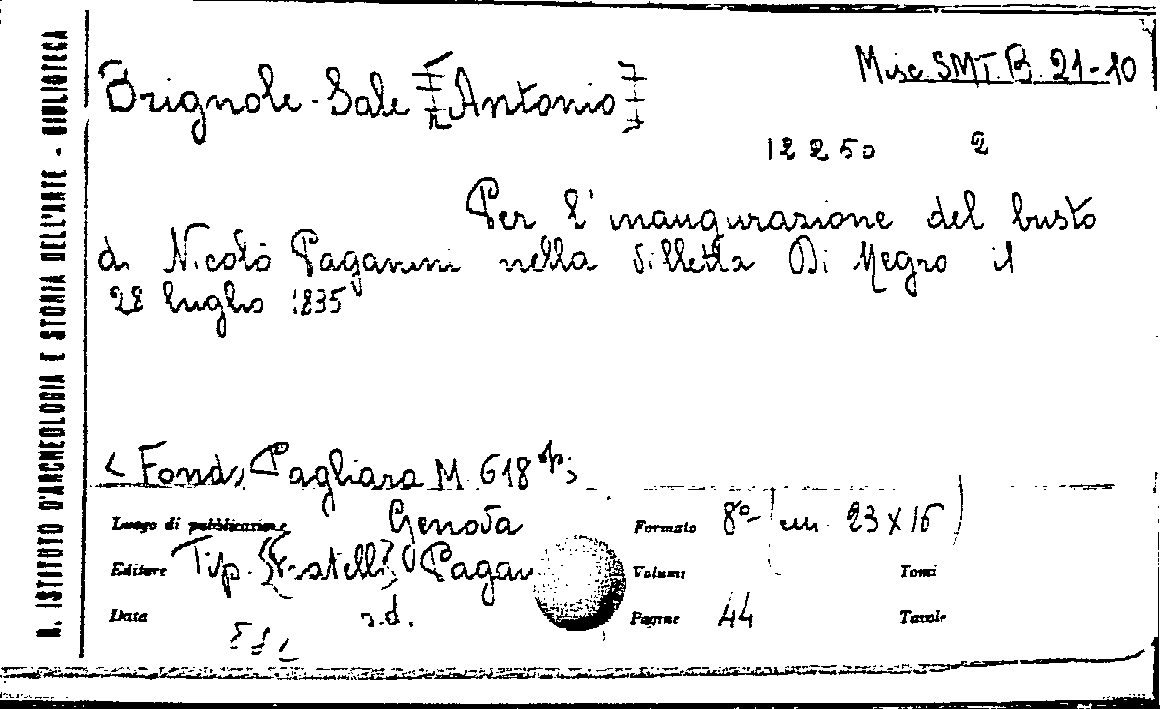 R. ISTITUTO D'ARCHEOLOGIA E STORIA DELL'ARTE - BIBLIOTECA
Misc SMT. B. 21-10
Brignole-Sale [Antonio]
12250 2
Per l'inaugurazione del busto
di Nicolò Paganini nella Villetta Di Negro il
28 luglio 1835
< Fondo Pagliara M. 618
Luogo di pubblicazione Genova Formato 8º (cm. 23x16)
Editore Tip. {Fratelli} Pagano Volumi Tomi
Data s.d. Pagine 44 Tavole